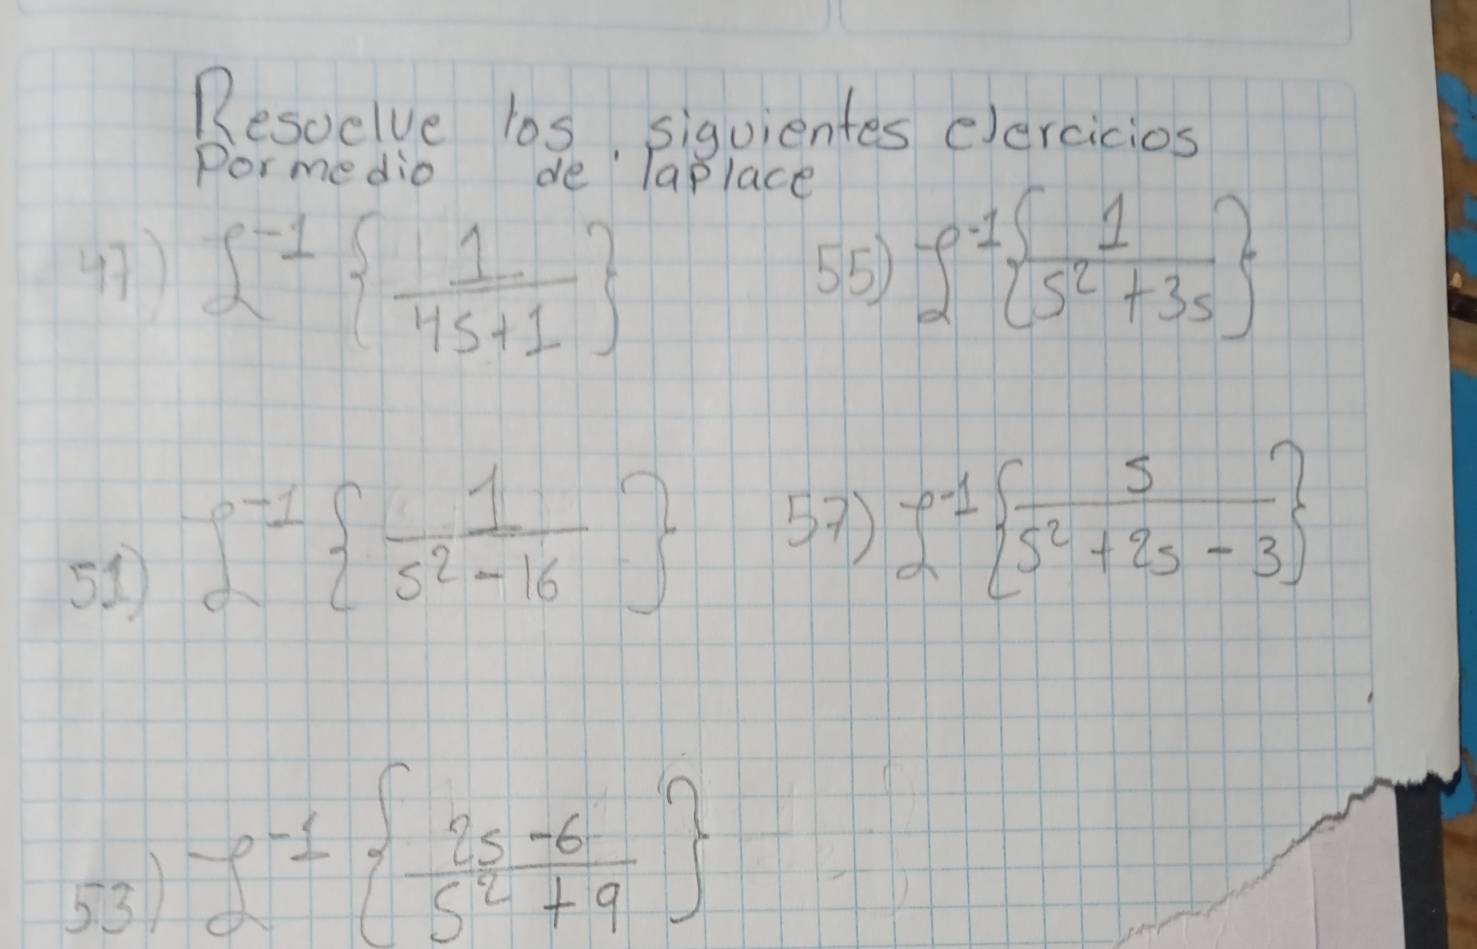 Resuelve los siguientes ejercicios
Por medio de laplace
47) ℒ⁻¹ { 1 / 4s+1 }
55) ℒ⁻¹ { 1 / s² + 3s }
51) ℒ⁻¹ { 1 / s² - 16 }
57) ℒ⁻¹ { s / s² + 2s - 3 }
53) ℒ⁻¹ { 2s - 6 / s² + 9 }